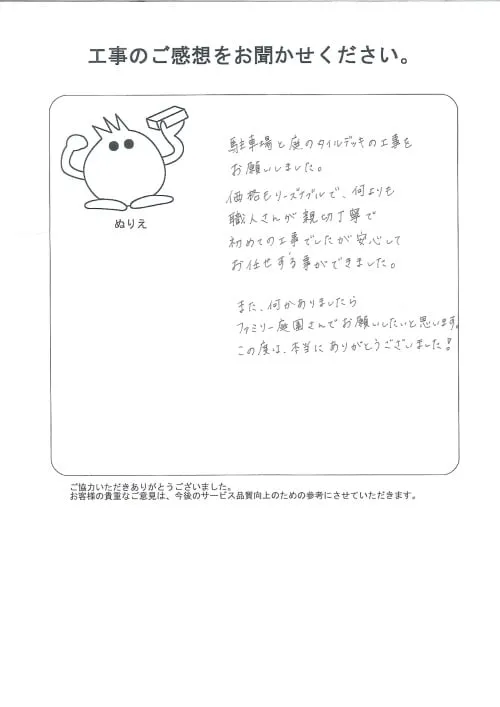 工事のご感想をお聞かせください。
ぬりえ
駐車場と庭のタイルデッキの工事を
お願いしました。
価格もリーズナブルで、何よりも
職人さんが親切丁寧で
初めての工事でしたが安心して
お任せする事ができました。
また、何かありましたら
ファミリー庭園さんでお願いしたいと思います。
この度は、本当にありがとうございました!
ご協力いただきありがとうございました。
お客様の貴重なご意見は、今後のサービス品質向上のための参考にさせていただきます。